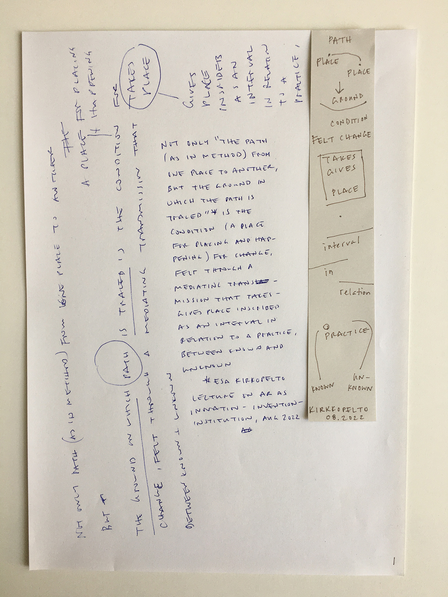 NOT ONLY PATH (AS IN METHOD) FROM ONE PLACE TO ANOTHER
BUT
THE GROUND ON WHICH PATH IS TRACED IS THE CONDITION FOR
A PLACE FOR PLACING
& HAPPENING
CHANGE, FELT THROUGH A MEDIATING TRANSMISSION THAT
TAKES
PLACE
BETWEEN KNOWN & UNKNOWN
GIVES
PLACE
INSIDE
AS AN
INTERVAL
IN RELATION
TO A
PRACTICE,
NOT ONLY "THE PATH
(AS IN METHOD) FROM
ONE PLACE TO ANOTHER,
BUT THE GROUND IN
WHICH THE PATH IS
TRACED"* IS THE
CONDITION (A PLACE
FOR PLACING AND HAP-
PENING) FOR CHANGE,
FELT THROUGH A
MEDIATING TRANS-
MISSION THAT TAKES-
GIVES PLACE INSIDE
AS AN INTERVAL IN
RELATION TO A PRACTICE,
BETWEEN KNOWN AND
UNKNOWN
*ESA KIRKKOPELTO
LECTURE ON AR AS
INVENTION-
INSTITUTION, AUG 2022
PATH
PLACE
PLACE
GROUND
CONDITION
FELT CHANGE
TAKES
GIVES
PLACE
interval
in
relation
PRACTICE
KNOWN
UN-
KNOWN
KIRKKOPELTO
08.2022
1